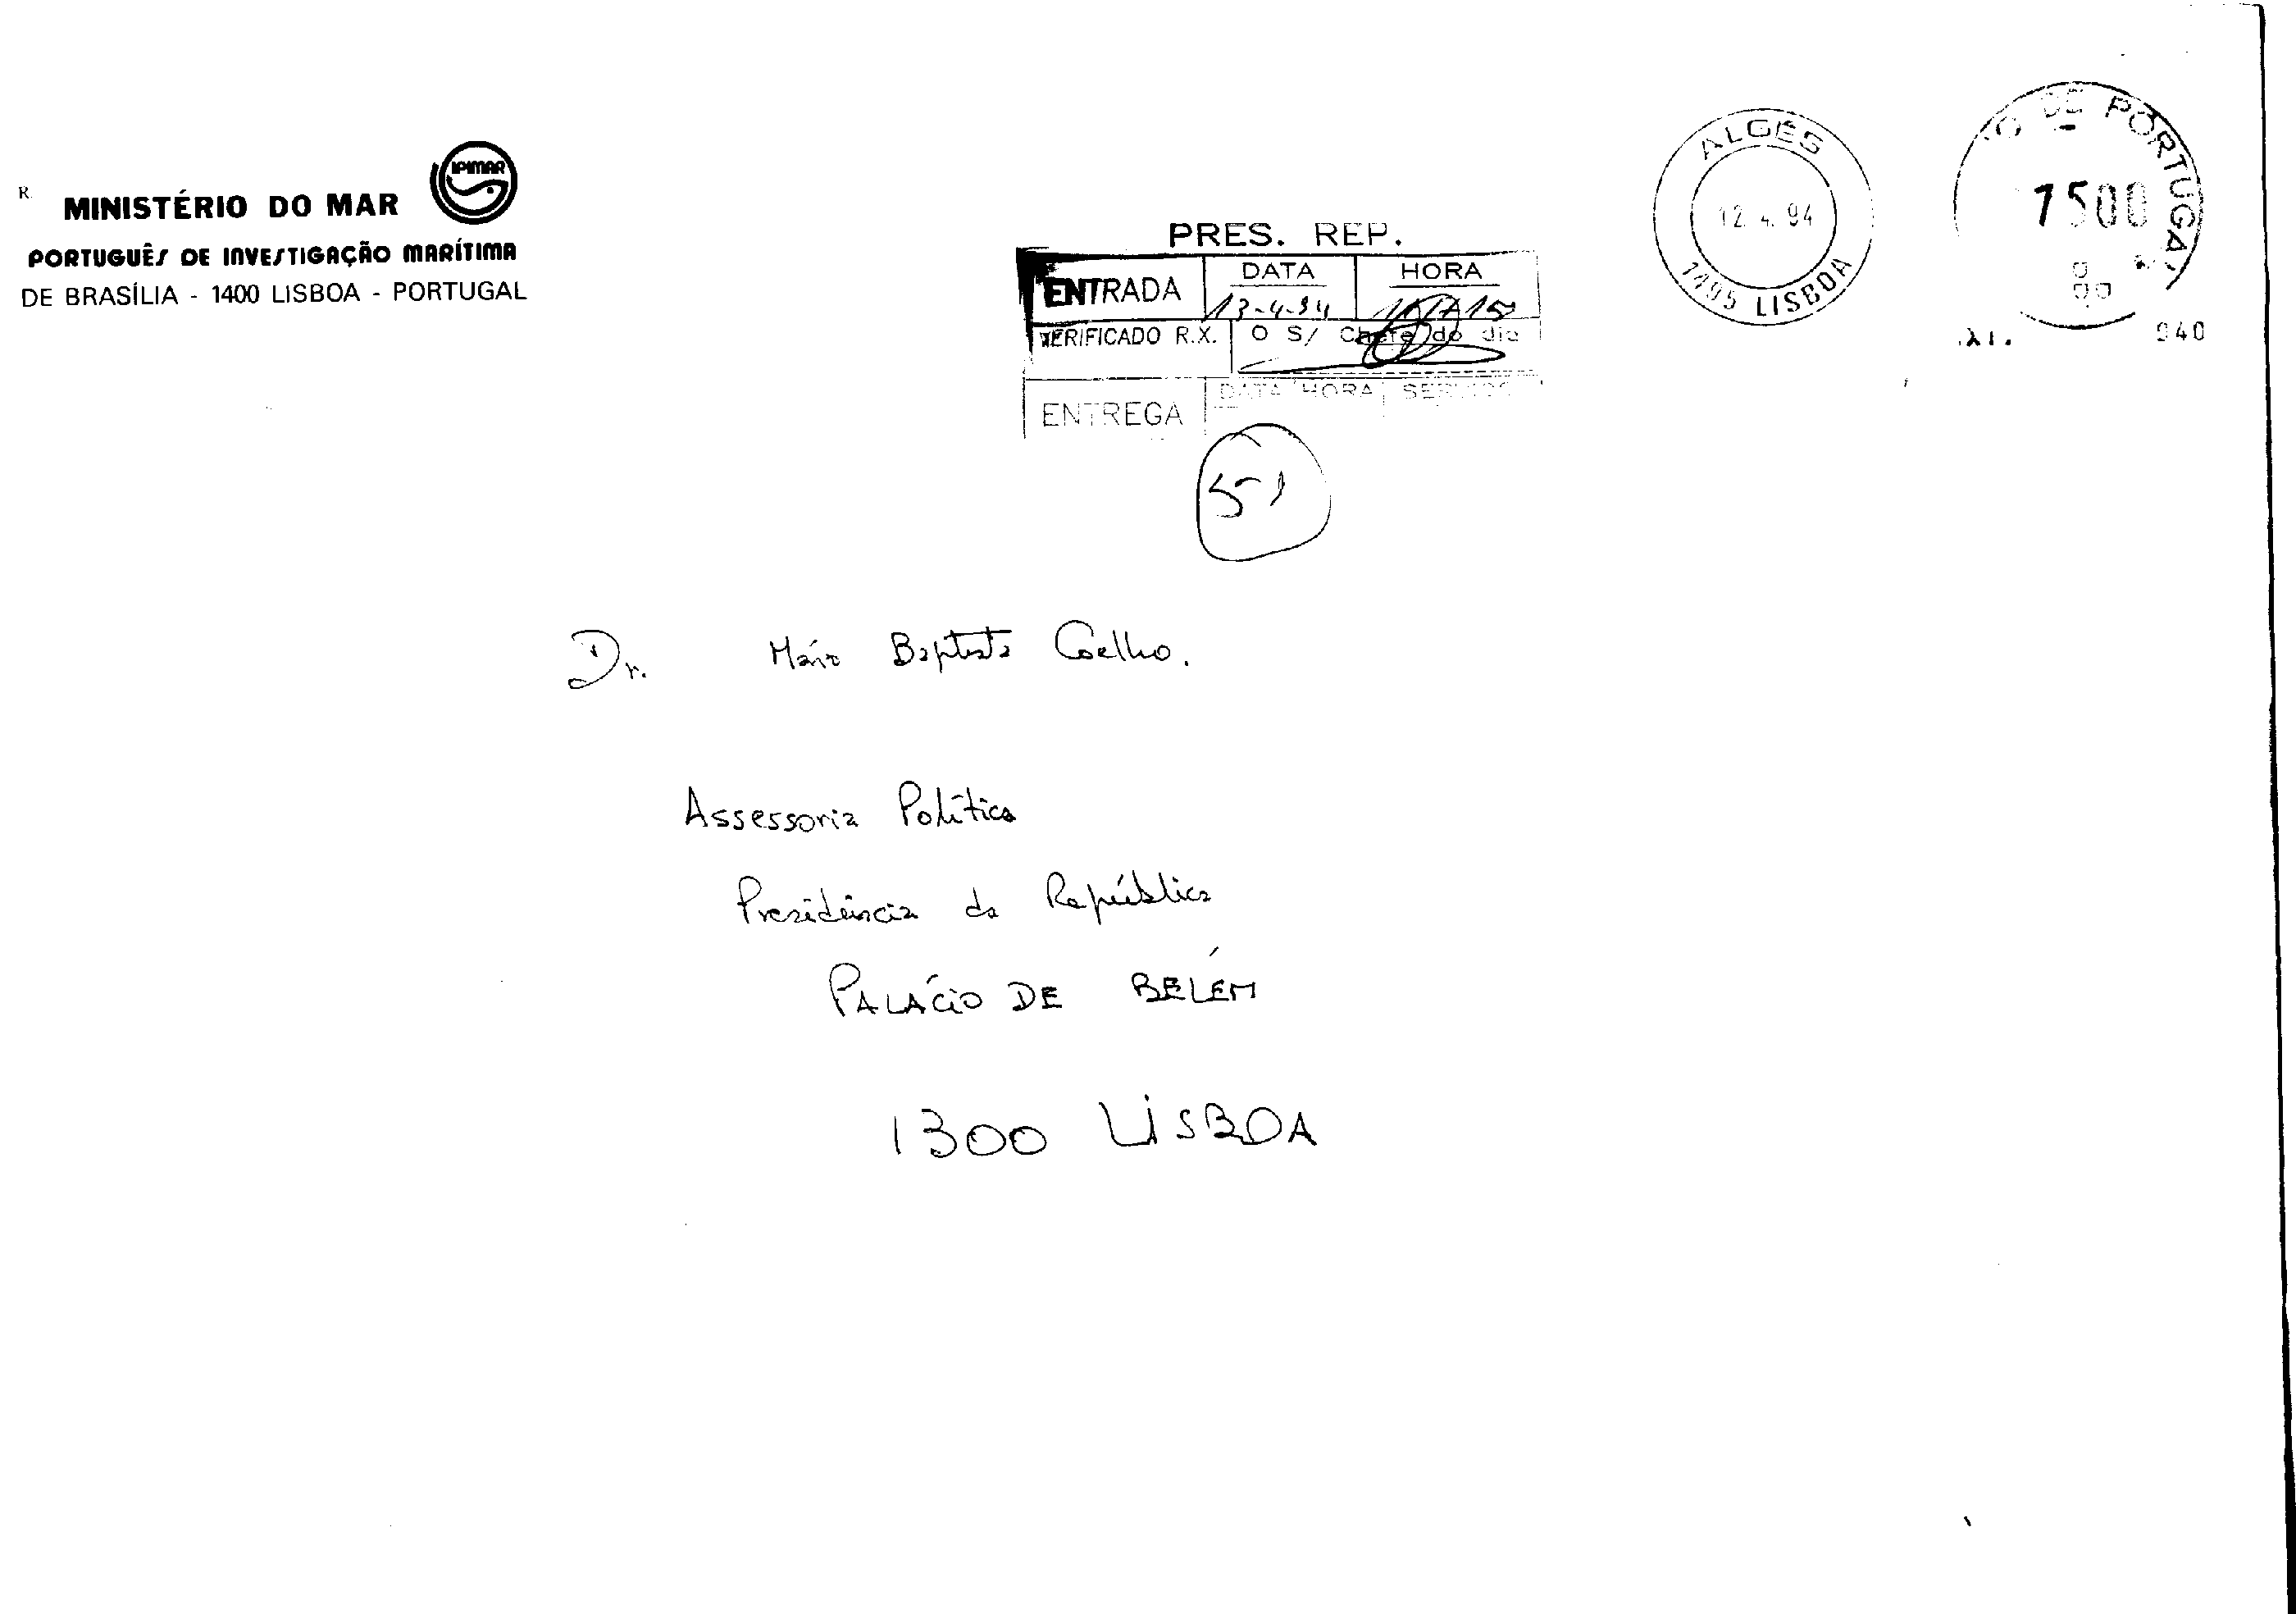 R. MINISTÉRIO DO MAR
IPIMAR
PORTUGUÊS DE INVESTIGAÇÃO MARÍTIMA
DE BRASÍLIA - 1400 LISBOA - PORTUGAL
PRES. REP.
ENTRADA DATA HORA
13-4-94
VERIFICADO R.X. O S/ Chefe do dia
ENTREGA DATA HORA SERVIÇO
51
ALGÉS
12. 4. 94
1495 LISBOA
DE PORTUGAL
7500
940
Dr. Mário Baptista Coelho.
Assessoria Política
Presidência da República
PALÁCIO DE BELÉM
1300 LISBOA